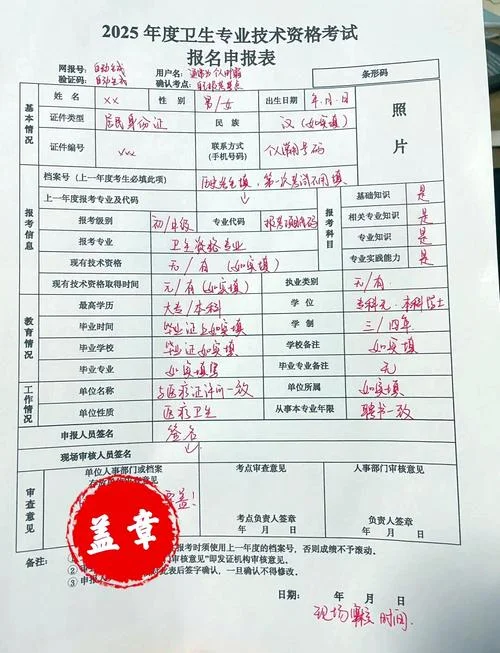 2025 年度卫生专业技术资格考试
报名申报表
网报号： 自动生成 用户名： 通常为个人邮箱 条形码
验证码： 自动生成 确认考点：
基本情况
姓 名 xx 性 别 男/女 出生日期 年.月.日 照片
证件类型 居民身份证 民 族 汉（如实填）
证件编号 vvv 联系方式（手机号码） 个人常用号码
报考信息
档案号（上一年度考生必填此项） 历史考生填，第一次考试不用填
上一年度报考专业及代码
报考级别 初/中级 专业代码 报考项目代码
报考专业 卫生资格专业
报考科目
基础知识 是
相关专业知识 是
专业知识 是
专业实践能力 是
现有技术资格 无/有（如实填）
现有技术资格取得时间 无/有（如实填） 执业类别 无/有
教育情况
最高学历 大专/本科 学 位 专科无.本科学士
毕业时间 毕业证上如实填 学 制 三/四年
毕业学校 毕业证如实填 学校备注 如实填
毕业专业 如实填写 毕业专业备注 无
工作情况
单位名称 与医疗证许可一致 单位所属 如实填
单位性质 医疗卫生 从事本专业年限 聘书一致
申报人员签名 签名
现场审核人员签名
审查意见
单位人事部门或档案 考点审查意见 人事部门审核意见
盖！
盖章
考点负责人签章 负责人签章
年 月 日 年 月 日
备注：
报考时须使用上一年度的档案号，否则成绩不予滚动。
② 审核意见”即发证机构审核意见。
③ 申报人 此表后签字确认，一旦确认不得修改。
日期： 年 月 日
现场审核时间.